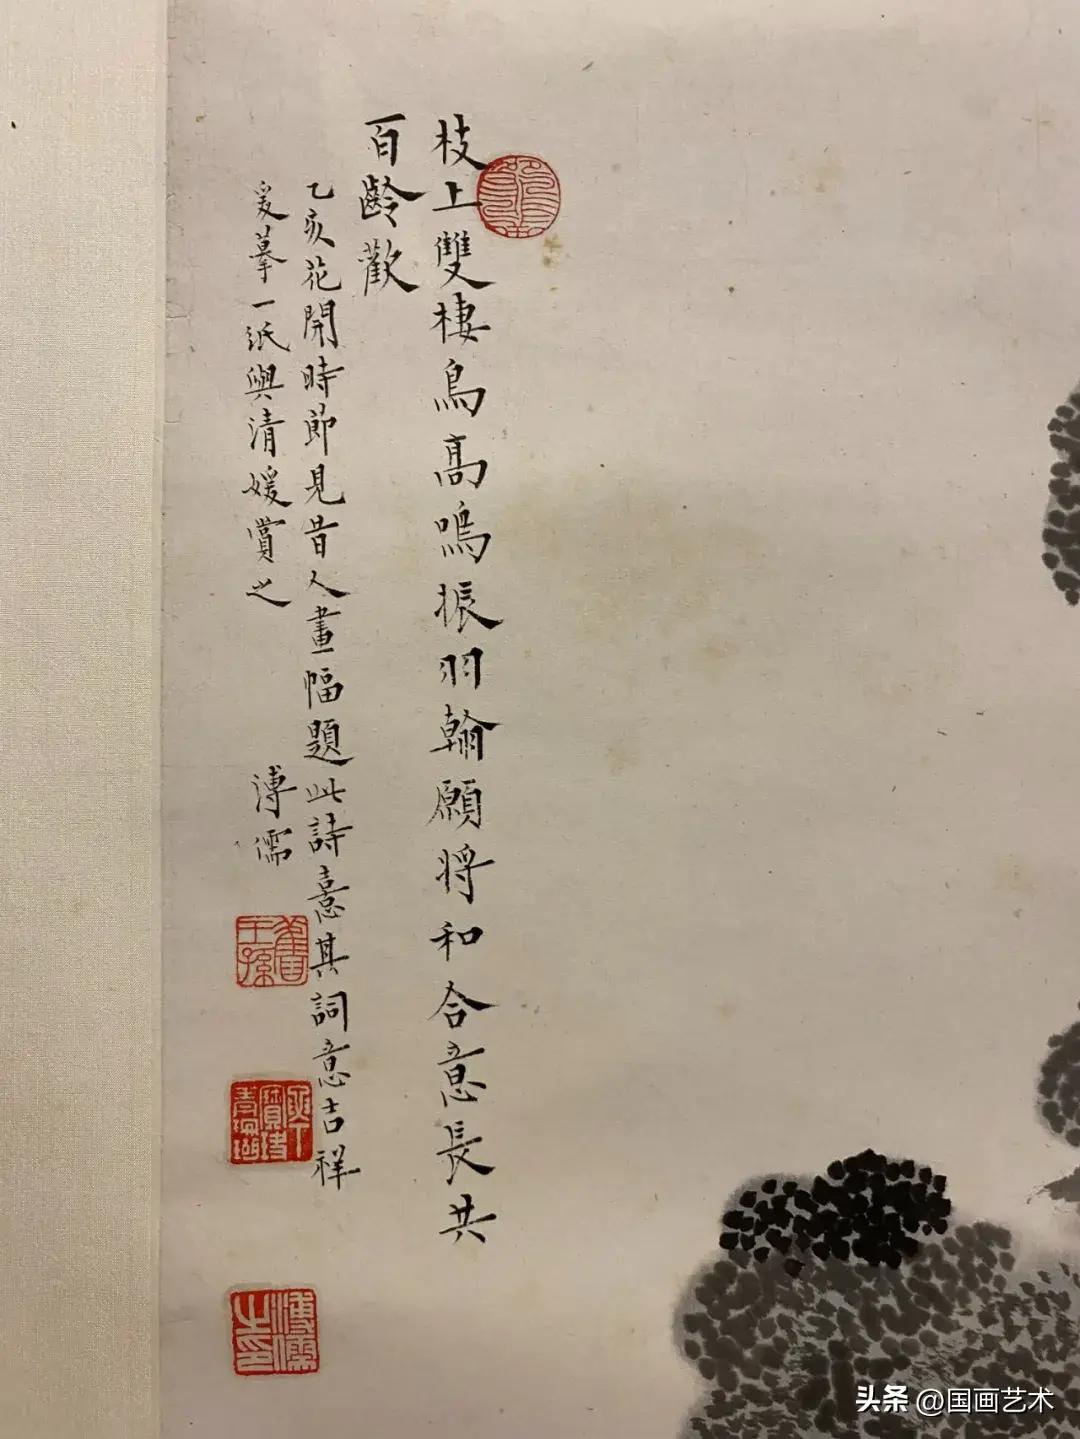 枝上雙棲鳥高鳴振羽翰願将和合意長共
百齡歡
乙亥花開時節見昔人畫幅題此詩意其詞意吉祥
爰摹一紙與清媛賞之
溥儒
舊王孫
溥儒之印
头条 @国画艺术